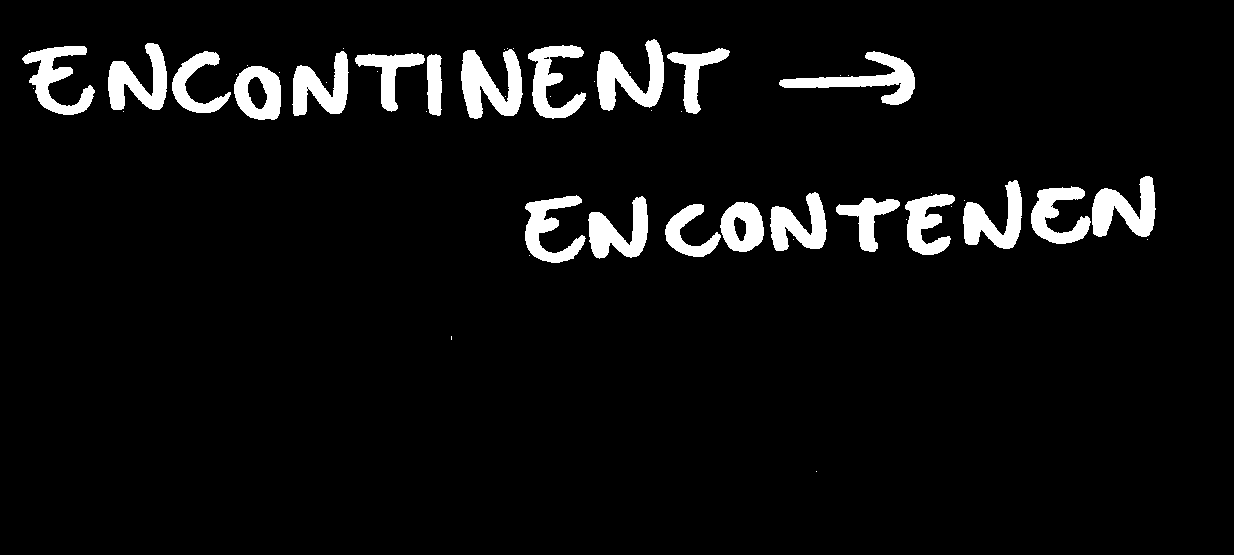 ENCONTINENT →
ENCONTENEN